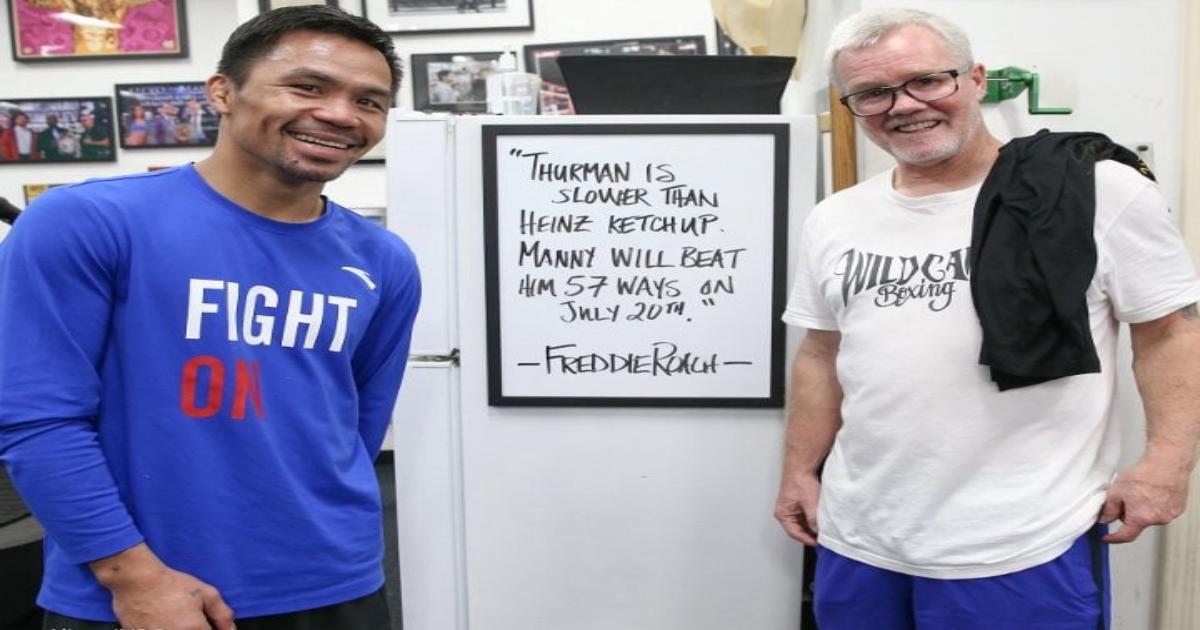 "THURMAN IS
SLOWER THAN
HEINZ KETCHUP.
MANNY WILL BEAT
HIM 57 WAYS ON
JULY 20TH."
—FREDDIE ROACH—
FIGHT
ON
WILDCA
Boxing